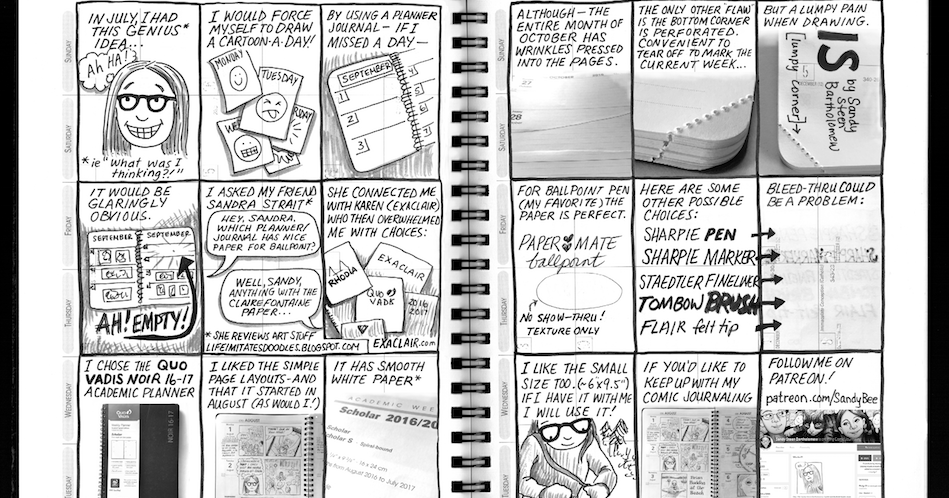 IN JULY, I HAD
THIS GENIUS*
IDEA...
AH HA!
*ie "WHAT WAS I
THINKING?!"
I WOULD FORCE
MYSELF TO DRAW
A CARTOON-A-DAY!
MONDAY
TUESDAY
BY USING A PLANNER
JOURNAL – IF I
MISSED A DAY—
SEPTEMBER
1
2
3
IT WOULD BE
GLARINGLY
OBVIOUS.
SEPTEMBER
SEPTEMBER
AH! EMPTY!
I ASKED MY FRIEND
SANDRA STRAIT*
HEY, SANDRA,
WHICH PLANNER/
JOURNAL HAS NICE
PAPER FOR BALLPOINT?
WELL, SANDY,
ANYTHING WITH THE
CLAIREFONTAINE
PAPER...
*SHE REVIEWS ART STUFF
LIFEIMITATESDOODLES.BLOGSPOT.COM
SHE CONNECTED ME
WITH KAREN (EXACLAIR)
WHO THEN OVERWHELMED
ME WITH CHOICES:
RHODIA
EXACLAIR
QUO
VADIS
2016
2017
EXACLAIR.com
I CHOSE THE QUO
VADIS NOIR 16-17
ACADEMIC PLANNER
NOIR 16·17
I LIKED THE SIMPLE
PAGE LAYOUTS-AND
THAT IT STARTED IN
AUGUST (AS WOULD I!)
AUGUST
IT HAS SMOOTH
WHITE PAPER*
ACADEMIC WEE
Scholar 2016/20
Scholar
SUNDAY
SATURDAY
FRIDAY
THURSDAY
WEDNESDAY
TUESDAY
ALTHOUGH—THE
ENTIRE MONTH OF
OCTOBER HAS
WRINKLES PRESSED
INTO THE PAGES.
28
THE ONLY OTHER "FLAW"
IS THE BOTTOM CORNER
IS PERFORATED.
CONVENIENT TO
TEAR OFF TO MARK THE
CURRENT WEEK...
BUT A LUMPY PAIN
WHEN DRAWING.
IS
by Sandy
Steen
Bartholomew
[lumpy corner]→
FOR BALLPOINT PEN
(MY FAVORITE) THE
PAPER IS PERFECT.
PAPER MATE
ballpoint
NO SHOW-THRU!
TEXTURE ONLY
HERE ARE SOME
OTHER POSSIBLE
CHOICES:
SHARPIE PEN
SHARPIE MARKER
STAEDTLER FINELINER
TOMBOW BRUSH
FLAIR felt tip
BLEED-THRU COULD
BE A PROBLEM:
I LIKE THE SMALL
SIZE TOO. (~6"x9.5")
IF I HAVE IT WITH ME
I WILL USE IT!
IF YOU'D LIKE TO
KEEP UP WITH MY
COMIC JOURNALING
FOLLOW ME ON
PATREON!
patreon.com/SandyBee
SUNDAY
SATURDAY
FRIDAY
THURSDAY
WEDNESDAY
TUESDAY